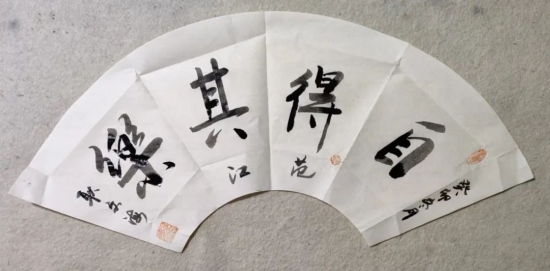 自得其樂
癸卯冬月
范江